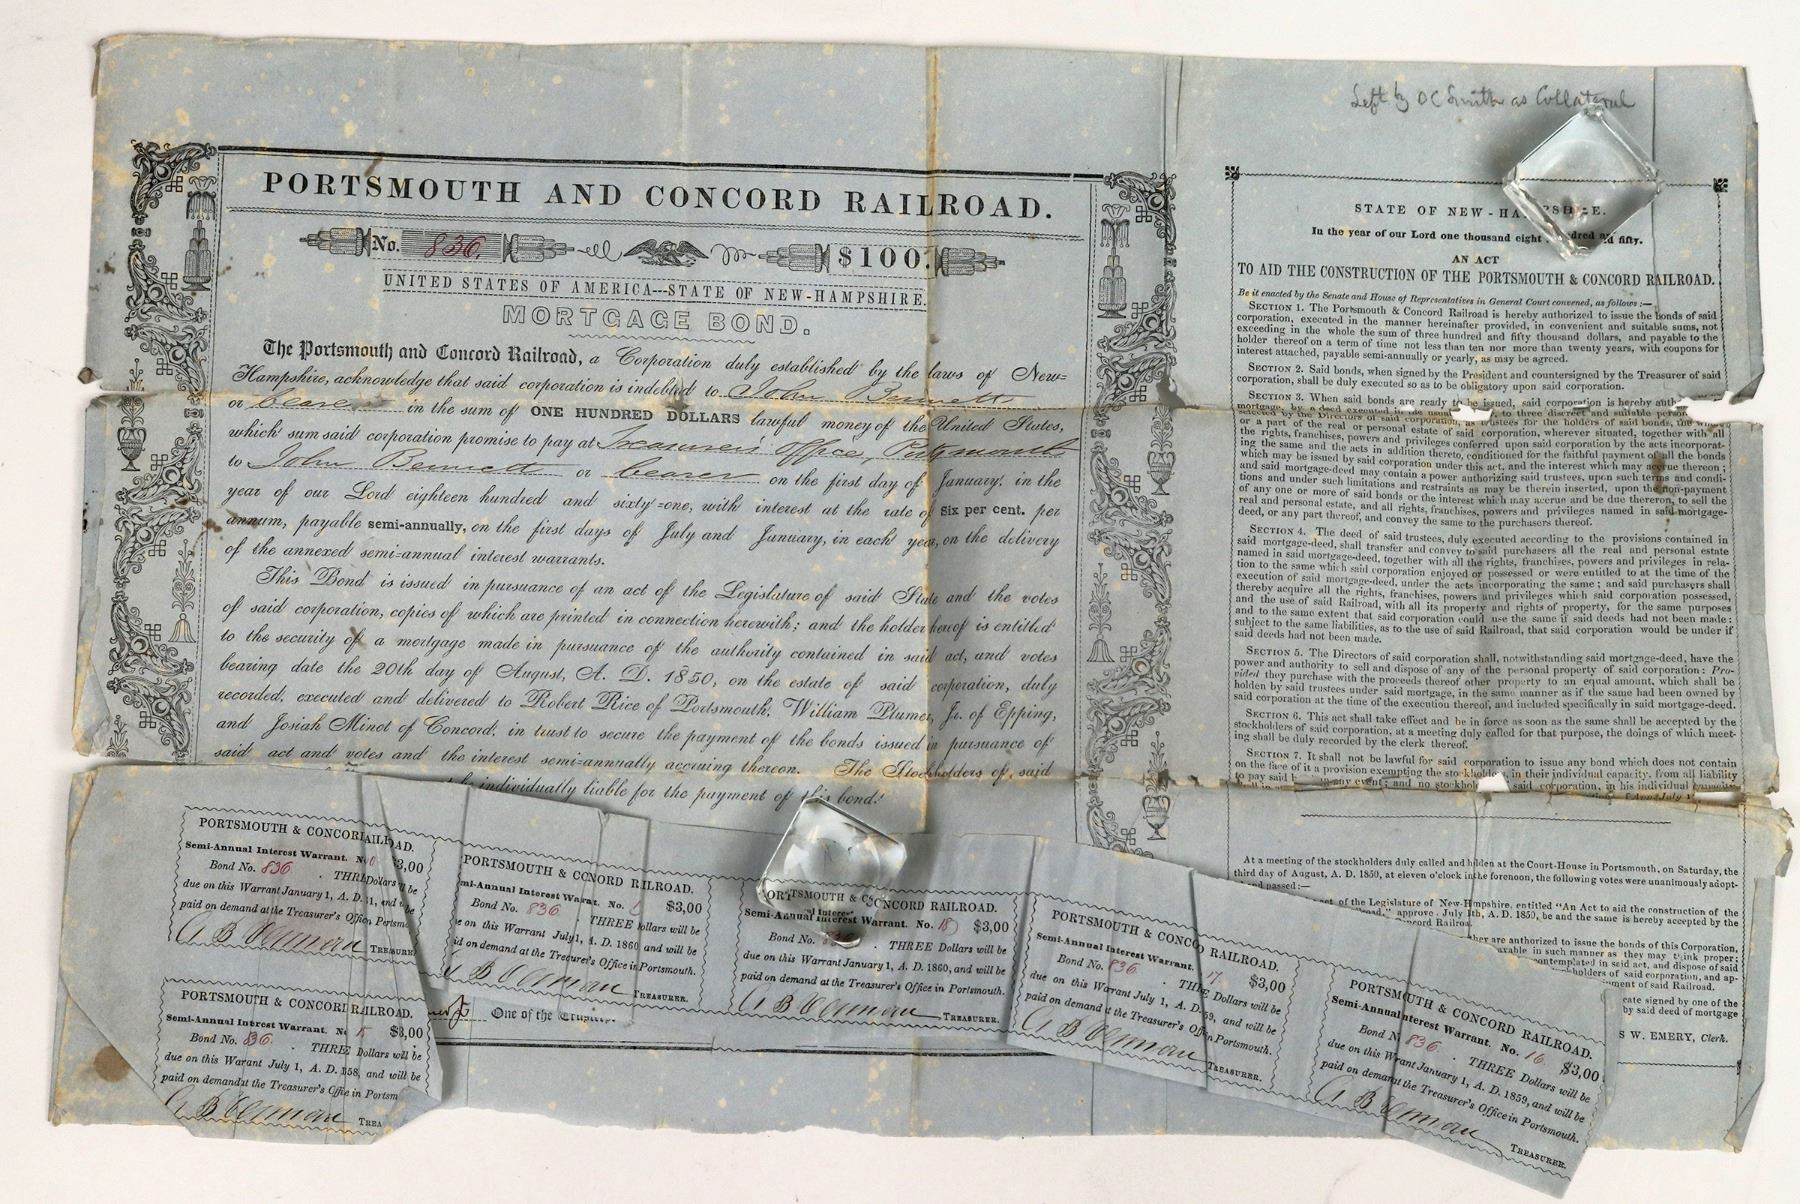 Left by OC Smith as Collateral
PORTSMOUTH AND CONCORD RAILROAD.
No. 836. $100.
UNITED STATES OF AMERICA---STATE OF NEW-HAMPSHIRE.
MORTGAGE BOND.
The Portsmouth and Concord Railroad, a Corporation duly established by the laws of New=
Hampshire, acknowledge that said corporation is indebted to John Bennett
or bearer in the sum of ONE HUNDRED DOLLARS lawful money of the United States,
which sum said corporation promise to pay at Treasurer's Office, Portsmouth
to John Bennett or bearer on the first day of January, in the
year of our Lord eighteen hundred and sixty=one, with interest at the rate of Six per cent. per
annum, payable semi-annually, on the first days of July and January, in each year, on the delivery
of the annexed semi=annual interest warrants.
This Bond is issued in pursuance of an act of the Legislature of said State and the votes
of said corporation, copies of which are printed in connection herewith; and the holder hereof is entitled
to the security of a mortgage made in pursuance of the authority contained in said act, and votes
bearing date the 20th day of August, A. D. 1850, on the estate of said corporation, duly
recorded, executed and delivered to Robert Rice of Portsmouth, William Plumer, Jr. of Epping,
and Josiah Minot of Concord, in trust to secure the payment of the bonds issued in pursuance of
said act and votes and the interest semi=annually accruing thereon. The Stockholders of said
be individually liable for the payment of this bond.
One of the Trustees.
STATE OF NEW-HAMPSHIRE.
In the year of our Lord one thousand eight hundred and fifty.
AN ACT
TO AID THE CONSTRUCTION OF THE PORTSMOUTH & CONCORD RAILROAD.
Be it enacted by the Senate and House of Representatives in General Court convened, as follows:—
SECTION 1. The Portsmouth & Concord Railroad is hereby authorized to issue the bonds of said
corporation, executed in the manner hereinafter provided, in convenient and suitable sums, not
exceeding in the whole the sum of three hundred and fifty thousand dollars, and payable to the
holder thereof on a term of time not less than ten nor more than twenty years, with coupons for
interest attached, payable semi-annually or yearly, as may be agreed.
SECTION 2. Said bonds, when signed by the President and countersigned by the Treasurer of said
corporation, shall be duly executed so as to be obligatory upon said corporation.
SECTION 3. When said bonds are ready to be issued, said corporation is hereby auth
mortgage, by a deed executed in due to three discreet and suitable
selected by the Directors of said corporation, as trustees for the holders of said bonds, the whole
or a part of the real or personal estate of said corporation, wherever situated, together with all
the rights, franchises, powers and privileges conferred upon said corporation by the acts incorporat-
ing the same and the acts in addition thereto, conditioned for the faithful payment of all the bonds
which may be issued by said corporation under this act, and the interest which may accrue thereon;
and said mortgage-deed may contain a power authorizing said trustees, upon such terms and condi-
tions and under such limitations and restraints as may be therein inserted, upon the non-payment
of any one or more of said bonds or the interest which may accrue and be due thereon, to sell the
real and personal estate, and all rights, franchises, powers and privileges named in said mortgage-
deed, or any part thereof, and convey the same to the purchasers thereof.
SECTION 4. The deed of said trustees, duly executed according to the provisions contained in
said mortgage-deed, shall transfer and convey to said purchasers all the real and personal estate
named in said mortgage-deed, together with all the rights, franchises, powers and privileges in rela-
tion to the same which said corporation enjoyed or possessed or were entitled to at the time of the
execution of said mortgage-deed, under the acts incorporating the same; and said purchasers shall
thereby acquire all the rights, franchises, powers and privileges which said corporation possessed,
and the use of said Railroad, with all its property and rights of property, for the same purposes
and to the same extent that said corporation could use the same if said deeds had not been made:
subject to the same liabilities, as to the use of said Railroad, that said corporation would be under if
said deeds had not been made.
SECTION 5. The Directors of said corporation shall, notwithstanding said mortgage-deed, have the
power and authority to sell and dispose of any of the personal property of said corporation: Pro-
vided they purchase with the proceeds thereof other property to an equal amount, which shall be
holden by said trustees under said mortgage, in the same manner as if the same had been owned by
said corporation at the time of the execution thereof, and included specifically in said mortgage-deed.
SECTION 6. This act shall take effect and be in force as soon as the same shall be accepted by the
stockholders of said corporation, at a meeting duly called for that purpose, the doings of which meet-
ing shall be duly recorded by the clerk thereof.
SECTION 7. It shall not be lawful for said corporation to issue any bond which does not contain
on the face of it a provision exempting the stockholders, in their individual capacity, from all liability
to pay said in any event; and no stockhol said corporation, in his individual capacity
At a meeting of the stockholders duly called and holden at the Court-House in Portsmouth, on Saturday, the
third day of August, A. D. 1850, at eleven o'clock in the forenoon, the following votes were unanimously adopt-
ed and passed:—
act of the Legislature of New-Hampshire, entitled "An Act to aid the construction of the
road," approve July 11th, A. D. 1850, be and the same is hereby accepted by the
Concord Railroad.
they are authorized to issue the bonds of this Corporation,
payable in such manner as they may think proper;
contemplated in said act, and dispose of said
holders of said corporation, and ap-
ment of said Railroad.
cate signed by one of the
by said deed of mortgage
S W. EMERY, Clerk.
PORTSMOUTH & CONCORD RAILROAD.
Semi-Annual Interest Warrant. No $3,00
Bond No. 836. THREE Dollars will be
due on this Warrant January 1, A. D. 61, and will be
paid on demand at the Treasurer's Office in Portsmo
TREASURER.
PORTSMOUTH & CONCORD RAILROAD.
mi-Annual Interest Warrant. No. $3,00
Bond No. 836 THREE Dollars will be
e on this Warrant July 1, A. D. 1860 and will be
id on demand at the Treasurer's Office in Portsmouth.
TREASURER.
PORTSMOUTH & CONCORD RAILROAD.
Semi-Annual Interest Warrant. No. 18 $3,00
Bond No. 836. THREE Dollars will be
due on this Warrant January 1, A. D. 1860, and will be
paid on demand at the Treasurer's Office in Portsmouth.
TREASURER.
PORTSMOUTH & CONCORD RAILROAD.
Semi-Annual Interest Warrant. 17 $3,00
Bond No. 836 THREE Dollars will be
due on this Warrant July 1, A. D. 59, and will be
paid on demand at the Treasurer's Office in Portsmouth.
TREASURER.
PORTSMOUTH & CONCORD RAILROAD.
Semi-Annual Interest Warrant. No. 16 $3,00
Bond N 836. THREE Dollars will be
due on this Warrant January 1, A. D. 1859, and will be
paid on demand at the Treasurer's Office in Portsmouth.
TREASURER.
PORTSMOUTH & CONCORD RAILROAD.
Semi-Annual Interest Warrant. No 15 $3,00
Bond No. 836. THREE Dollars will be
due on this Warrant July 1, A. D. 1858, and will be
paid on demand at the Treasurer's Office in Portsm
TREA